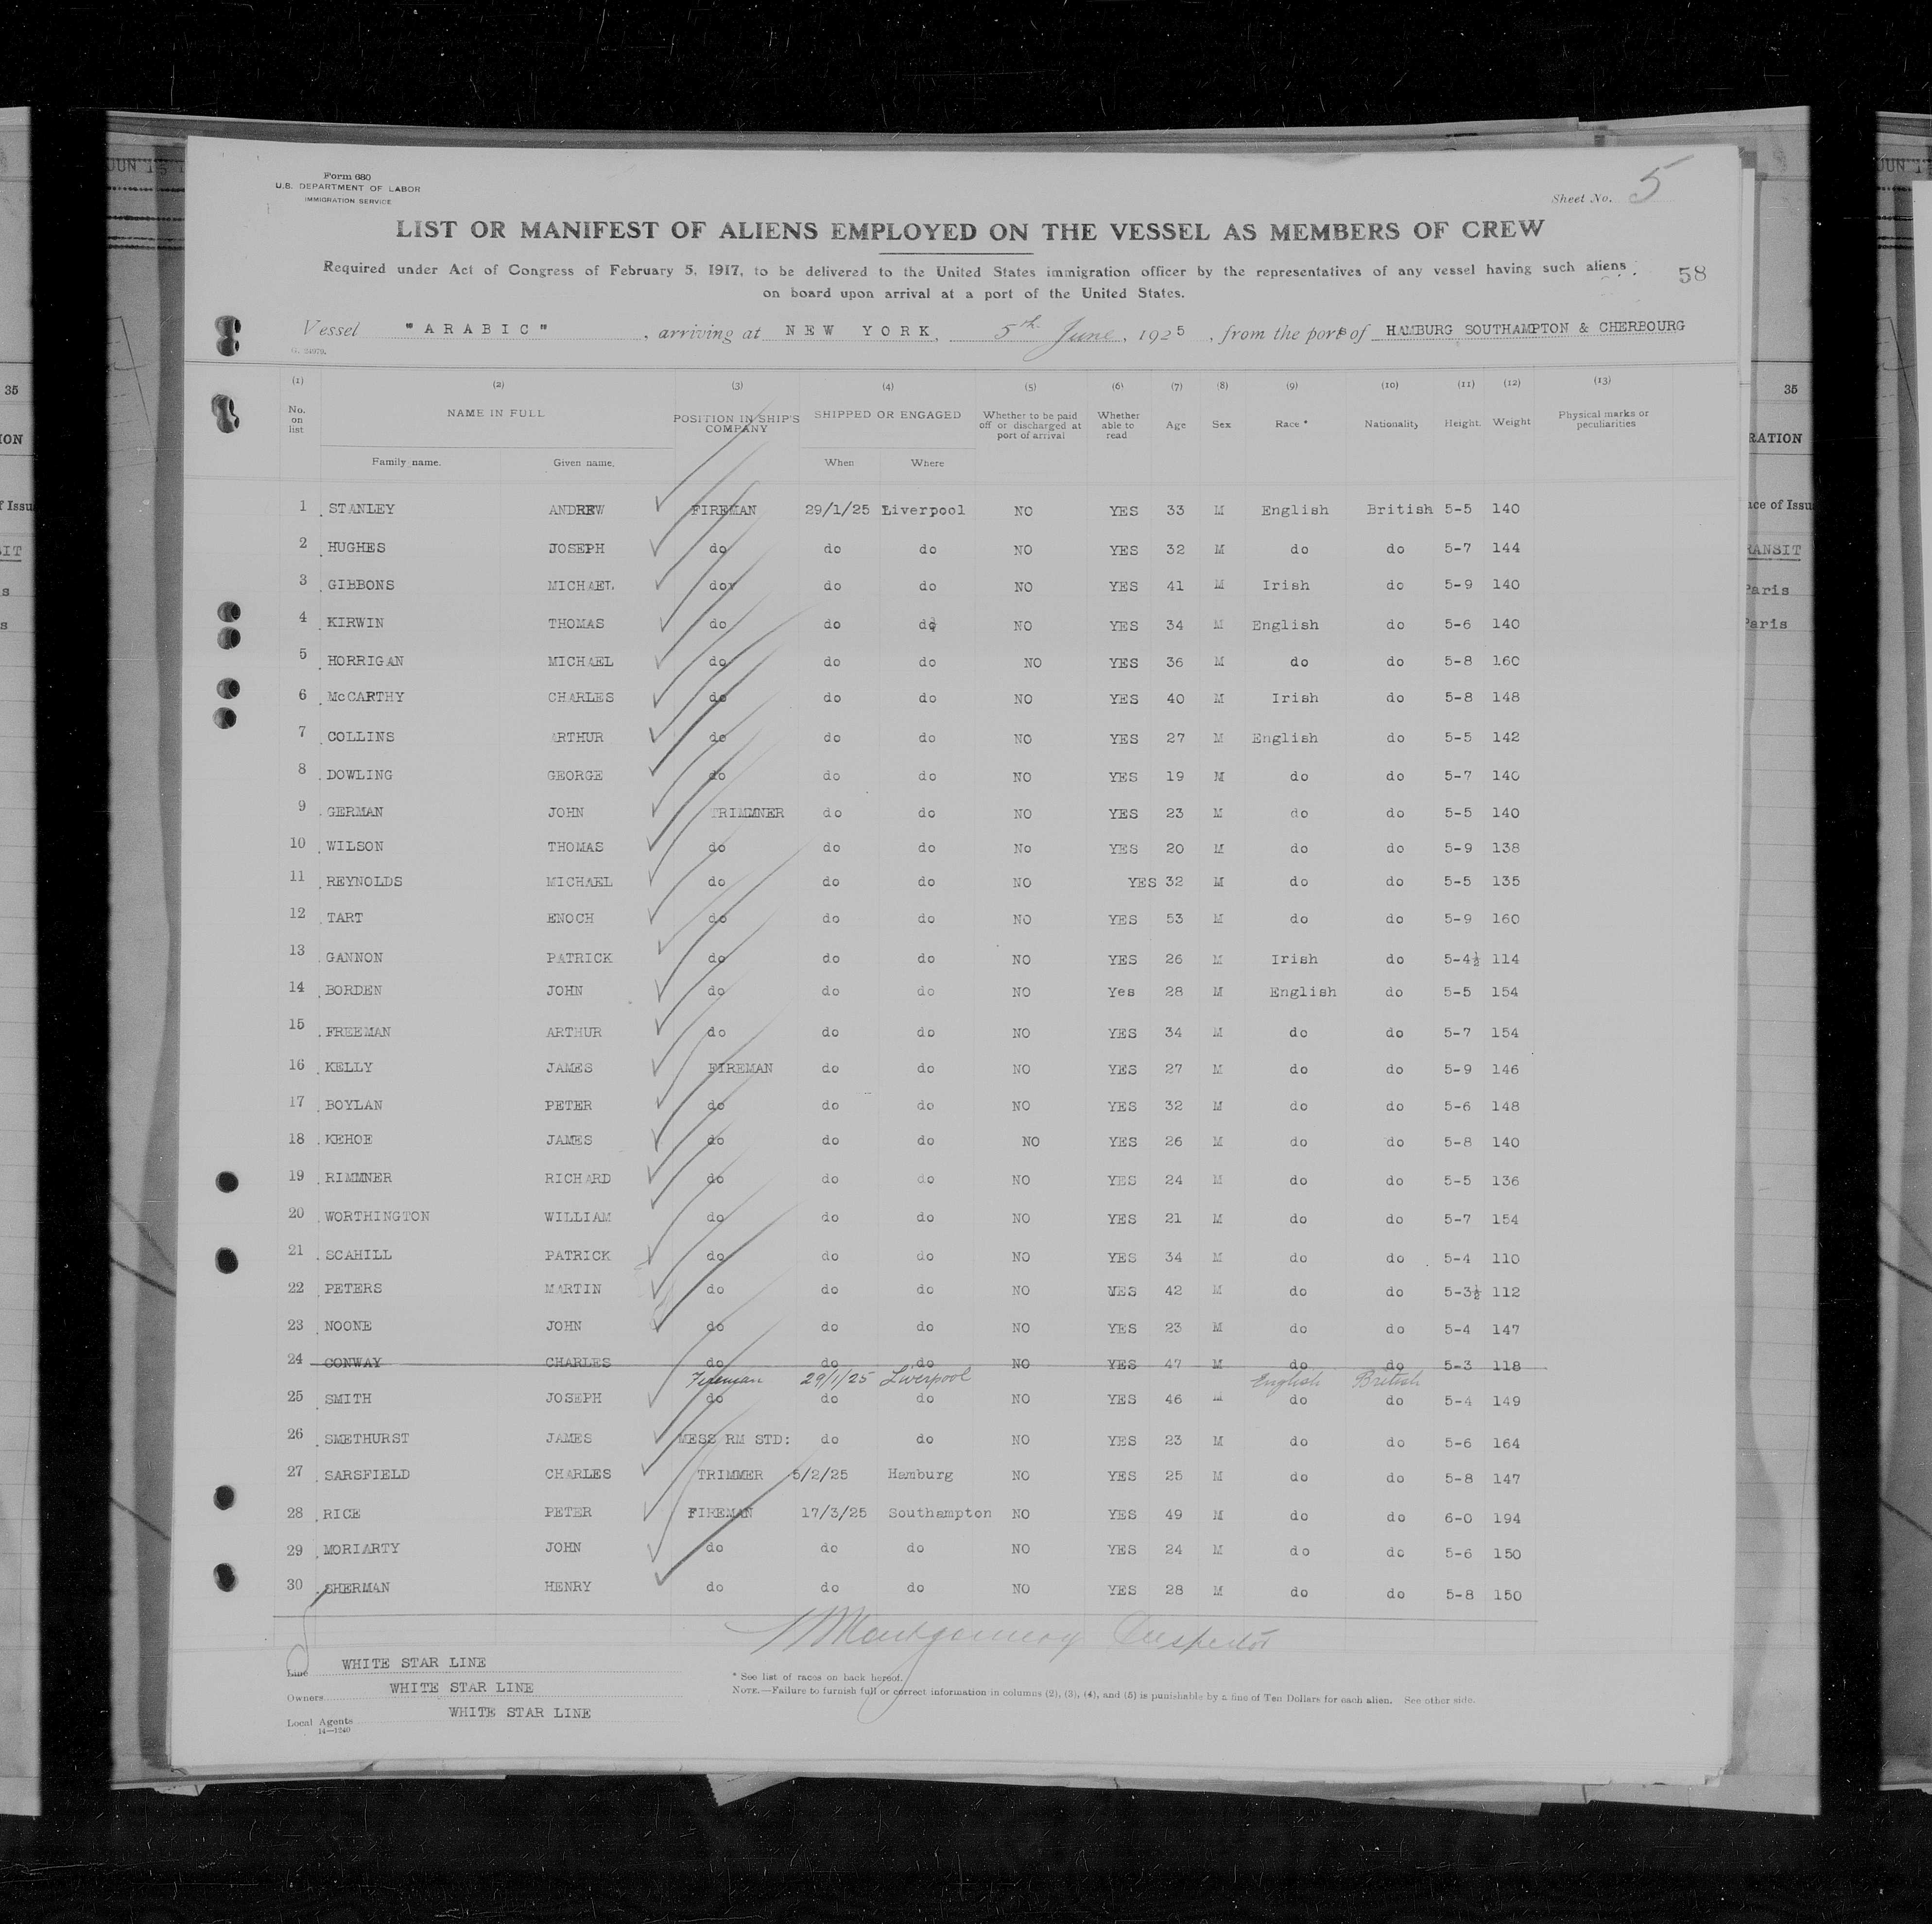 Form 680
U.S. DEPARTMENT OF LABOR
IMMIGRATION SERVICE
Sheet No. 5
LIST OR MANIFEST OF ALIENS EMPLOYED ON THE VESSEL AS MEMBERS OF CREW
Required under Act of Congress of February 5, 1917, to be delivered to the United States immigration officer by the representatives of any vessel having such aliens
on board upon arrival at a port of the United States.
58
Vessel "ARABIC", arriving at NEW YORK, 5th June, 1925, from the ports of HAMBURG SOUTHAMPTON & CHERBOURG
(1) (2) (3) (4) (5) (6) (7) (8) (9) (10) (11) (12) (13)
No. on list NAME IN FULL POSITION IN SHIP'S COMPANY SHIPPED OR ENGAGED Whether to be paid off or discharged at port of arrival Whether able to read Age Sex Race * Nationality Height. Weight Physical marks or peculiarities
Family name. Given name. When Where
1 STANLEY ANDREW FIREMAN 29/1/25 Liverpool NO YES 33 M English British 5-5 140
2 HUGHES JOSEPH do do do NO YES 32 M do do 5-7 144
3 GIBBONS MICHAEL do do do NO YES 41 M Irish do 5-9 140
4 KIRWIN THOMAS do do do NO YES 34 M English do 5-6 140
5 HORRIGAN MICHAEL do do do NO YES 36 M do do 5-8 160
6 McCARTHY CHARLES do do do NO YES 40 M Irish do 5-8 148
7 COLLINS ARTHUR do do do NO YES 27 M English do 5-5 142
8 DOWLING GEORGE do do do NO YES 19 M do do 5-7 140
9 GERMAN JOHN TRIMMNER do do NO YES 23 M do do 5-5 140
10 WILSON THOMAS do do do No YES 20 M do do 5-9 138
11 REYNOLDS MICHAEL do do do NO YES 32 M do do 5-5 135
12 TART ENOCH do do do NO YES 53 M do do 5-9 160
13 GANNON PATRICK do do do NO YES 26 M Irish do 5-4½ 114
14 BORDEN JOHN do do do NO Yes 28 M English do 5-5 154
15 FREEMAN ARTHUR do do do NO YES 34 M do do 5-7 154
16 KELLY JAMES FIREMAN do do NO YES 27 M do do 5-9 146
17 BOYLAN PETER do do do NO YES 32 M do do 5-6 148
18 KEHOE JAMES do do do NO YES 26 M do do 5-8 140
19 RIMMNER RICHARD do do do NO YES 24 M do do 5-5 136
20 WORTHINGTON WILLIAM do do do NO YES 21 M do do 5-7 154
21 SCAHILL PATRICK do do do NO YES 34 M do do 5-4 110
22 PETERS MARTIN do do do NO YES 42 M do do 5-3½ 112
23 NOONE JOHN do do do NO YES 23 M do do 5-4 147
24 CONWAY CHARLES do do do NO YES 47 M do do 5-3 118
Fireman 29/1/25 Liverpool English British
25 SMITH JOSEPH do do do NO YES 46 M do do 5-4 149
26 SMETHURST JAMES MESS RM STD: do do NO YES 23 M do do 5-6 164
27 SARSFIELD CHARLES TRIMMER 5/2/25 Hamburg NO YES 25 M do do 5-8 147
28 RICE PETER FIREMAN 17/3/25 Southampton NO YES 49 M do do 6-0 194
29 MORIARTY JOHN do do do NO YES 24 M do do 5-6 150
30 SHERMAN HENRY do do do NO YES 28 M do do 5-8 150
Montgomery Inspector
Line WHITE STAR LINE
Owners WHITE STAR LINE
Local Agents WHITE STAR LINE
14—1240
* See list of races on back hereof.
NOTE.—Failure to furnish full or correct information in columns (2), (3), (4), and (5) is punishable by a fine of Ten Dollars for each alien. See other side.